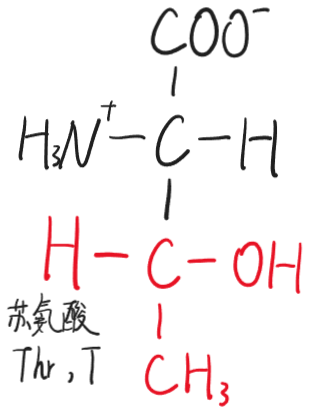 COO⁻
H₃N⁺-C-H
H-C-OH
CH₃
苏氨酸
Thr, T